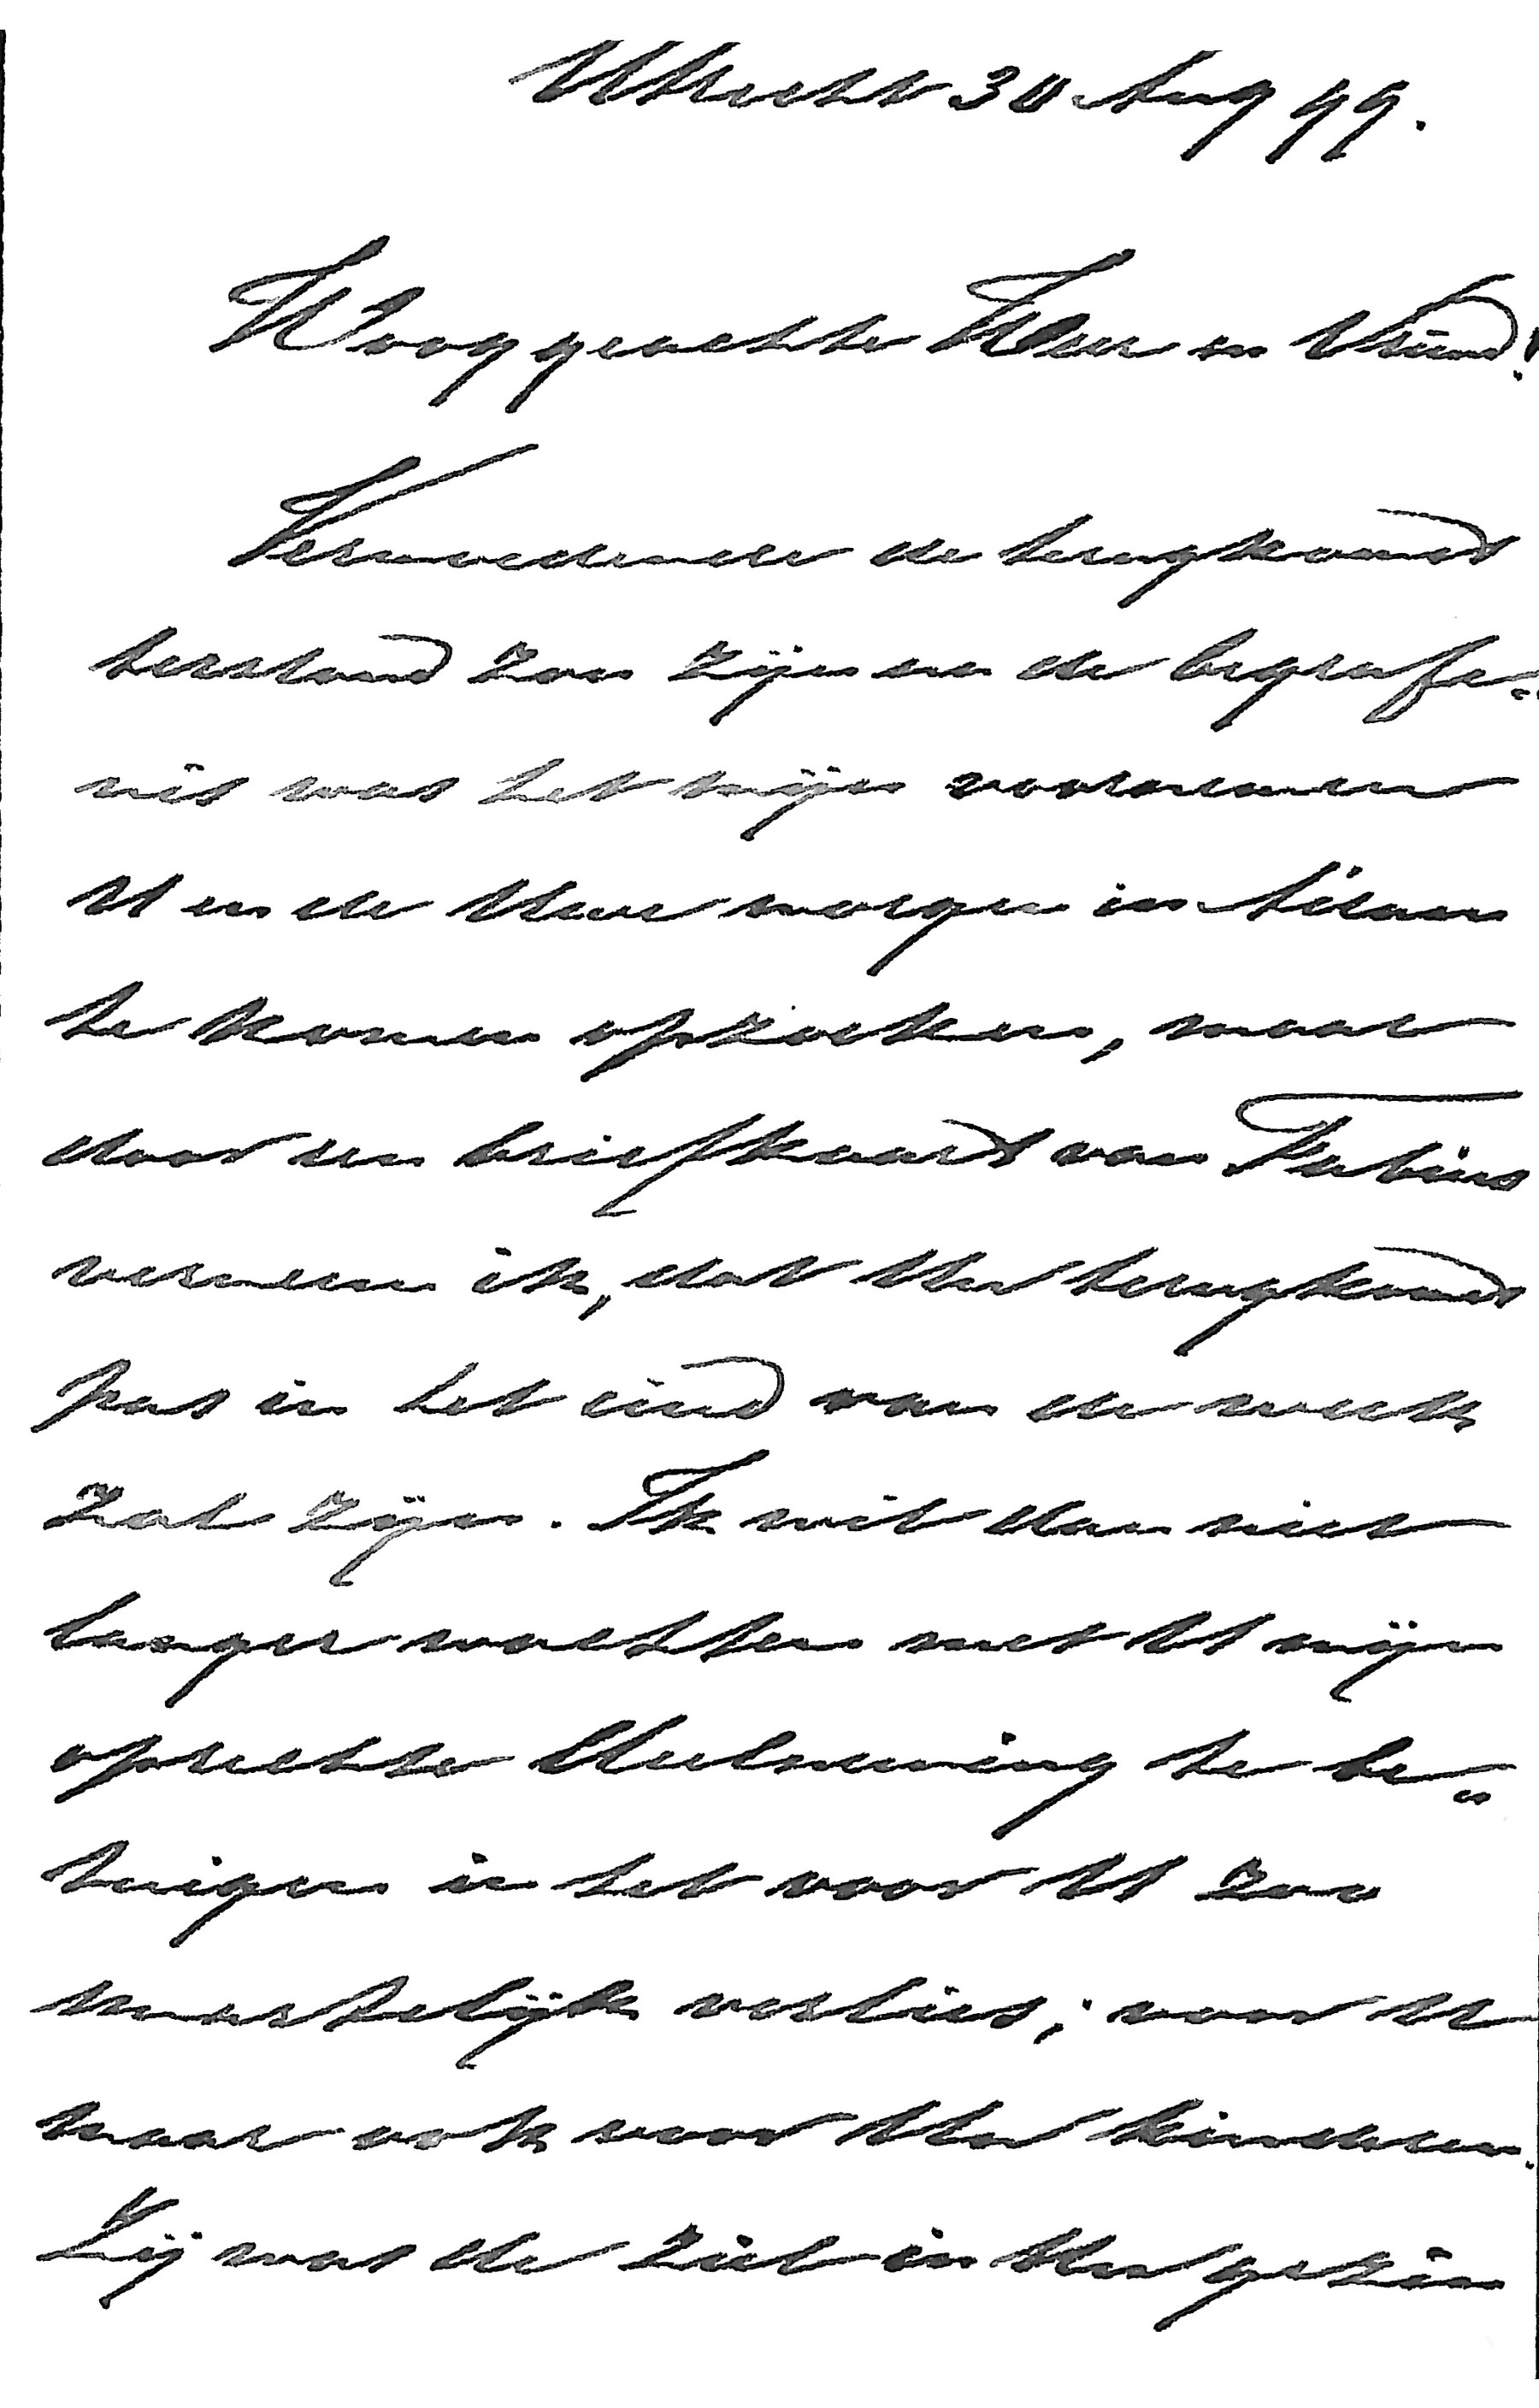 Utrecht 30 Aug 99.
Hooggeachte Heer en Vriend!
Vermoedende de terugkomst
terstond zou zijn na de begrafe„
nis was het mijn voornemen
U en de Uwe morgen in
te komen opzoeken, maar
door een briefkaart van Fabius
verneem ik, dat Uw terugkomst
pas in het eind van de week
zal zijn. Ik wil dan niet
langer wachten met U mijn
oprechte deelneming te be„
tuigen in het voor U zoo
smartelijk verlies; voor U
maar ook voor Uw kinderen.
Zij was de ziel in Uw gezin